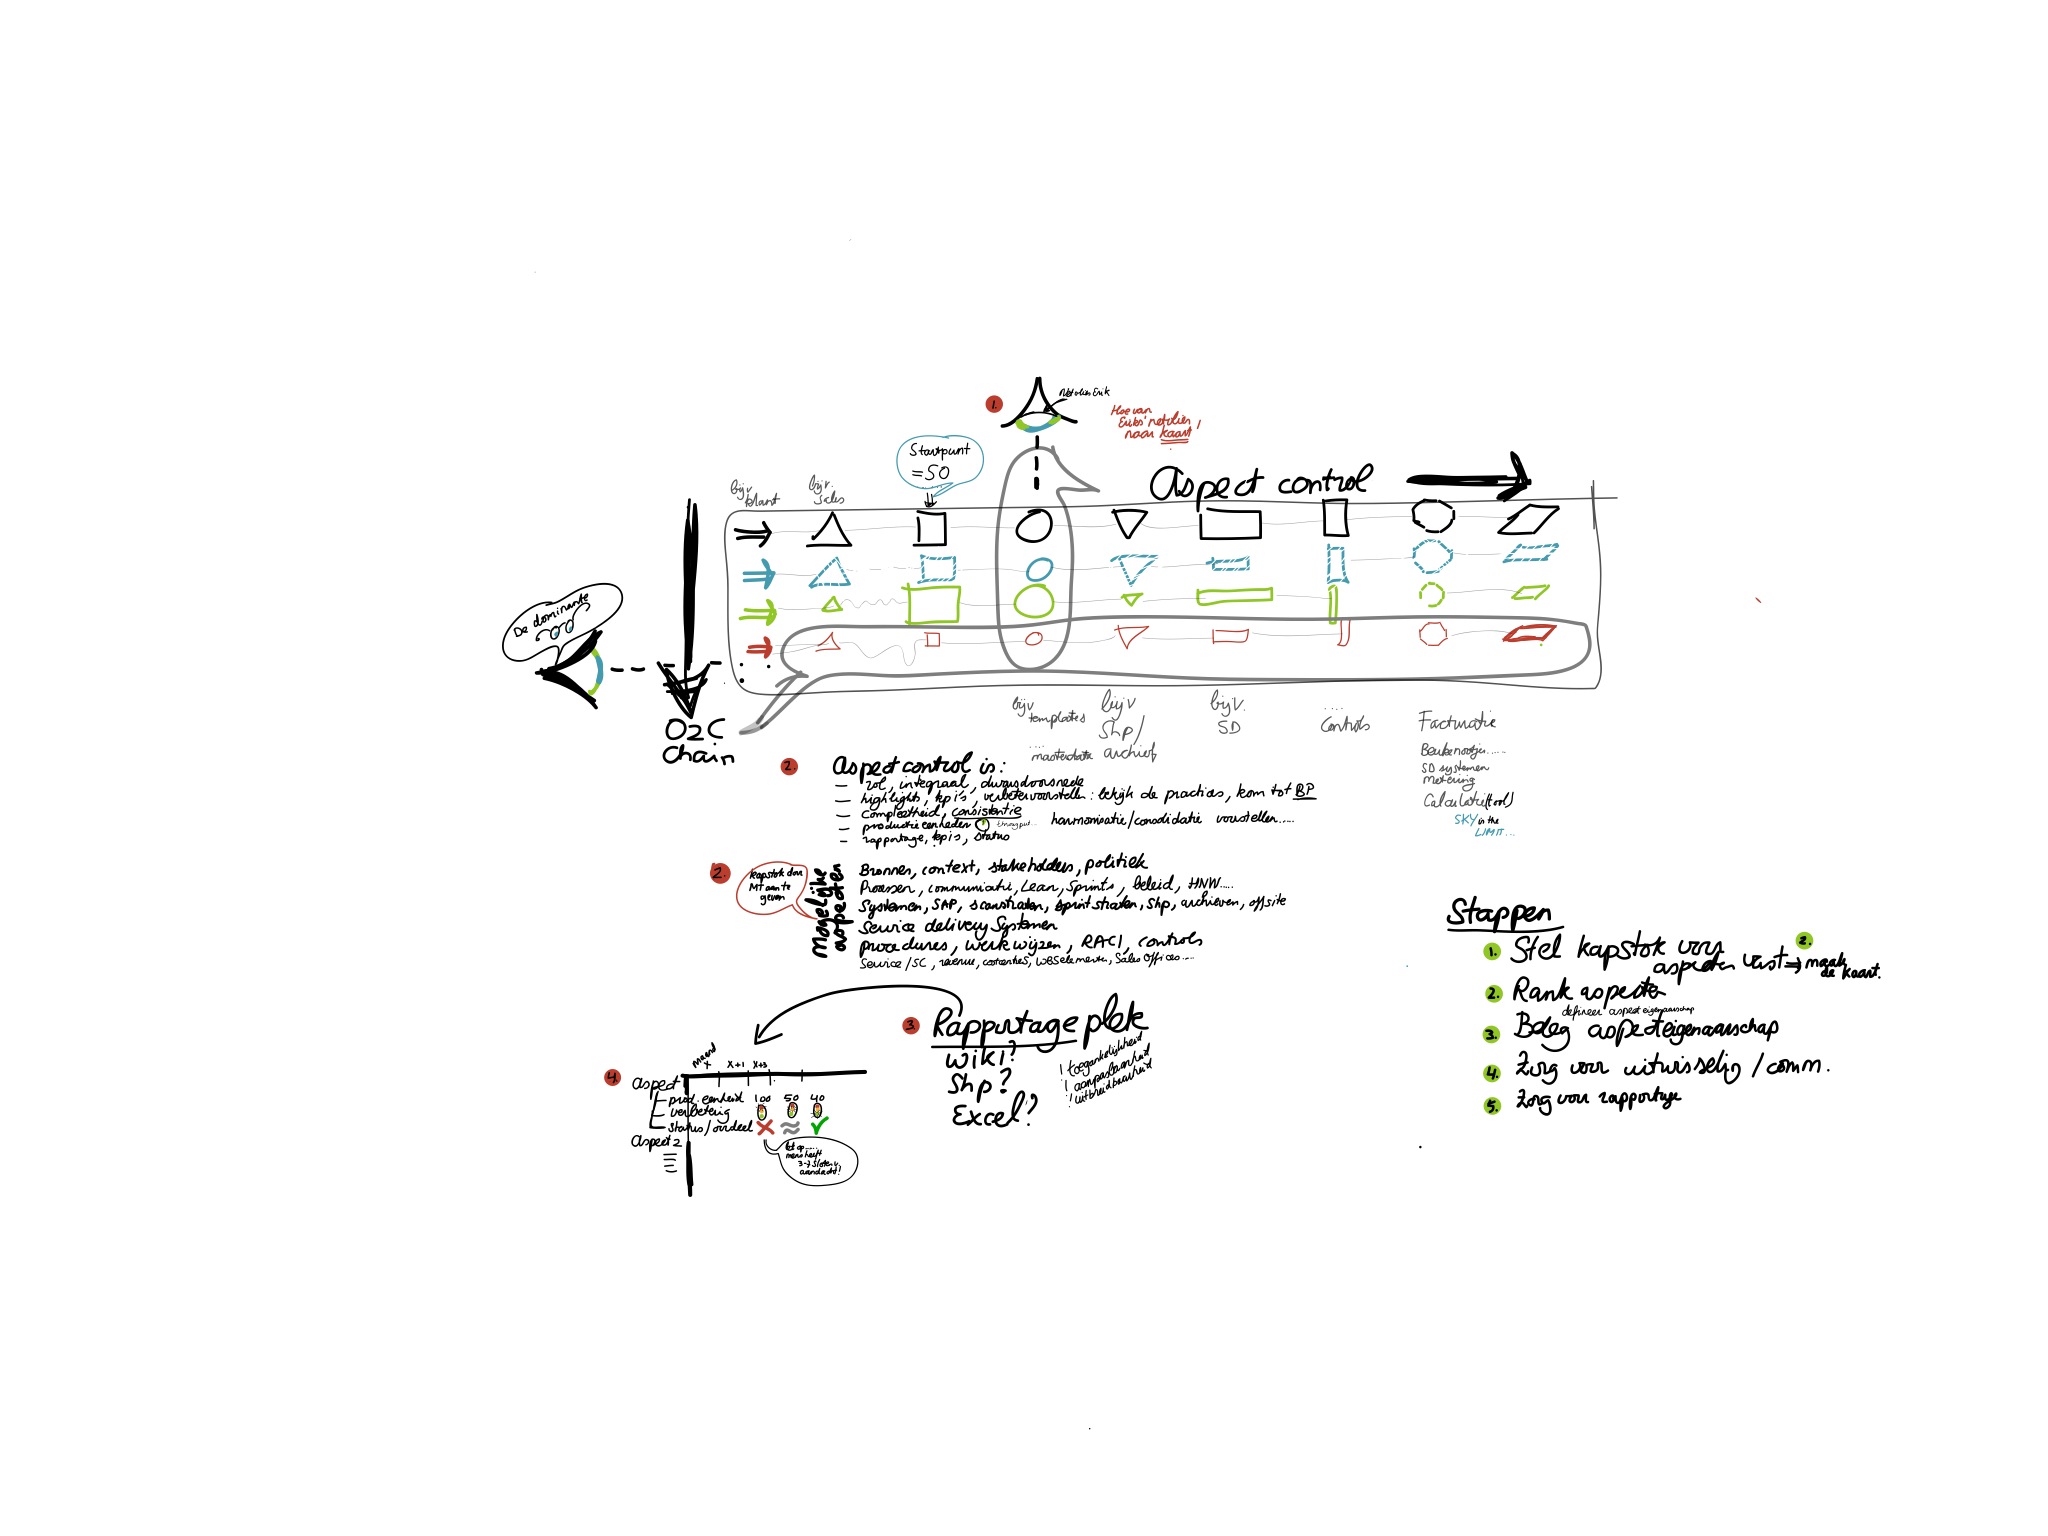 1.
Hoe van
Eriks' netvlies
naar kaart!
Startpunt
= 50
Aspect control
bijv
klant
bijv.
Sales
De dominante
O2C
Chain
bijv
templates
....
masterdata
bijv
Shp/
archief
bijv.
SD
....
Controls
Facturatie
SD systemen
Metering
Calculatie(tool)
SKY is the
LIMIT...
2.
Aspect control is:
– rol, integraal, dwarsdoorsnede
– highlights, kpi's, verbetervoorstellen: bekijk de practices, kom tot BP
– Compleetheid, consistentie
– productieeenheden harmonisatie/consolidatie voorstellen.....
– rapportage, kpis, status
2.
Kapstok door
MT aan te
geven
Mogelijke
aspecten
Bronnen, context, stakeholders, politiek
Processen, communicatie, Lean, Sprints, beleid, HNW.....
Systemen, SAP, scanstraten, printstraten, Shp, archieven, offsite
Service delivery Systemen
procedures, werkwijzen, RACI, controls
Service/SC, revenue, costcenters, WBS elementen, Sales Offices.....
3.
Rapportage plek
Wiki?
Shp?
Excel?
! toegankelijkheid
! aanpasbaarheid
! uitbreidbaarheid
4.
maand
x
x+1
x+3
Aspect
prod. eenheid 100 50 40
verbetering
Status/oordeel
Aspect 2
Let op.....
mens heeft
3-7 sloten v.
aandacht!
Stappen
1. Stel kapstok voor
aspecten vast ⇒ maak
de kaart.
2.
2. Rank aspecten
definieer aspecteigenaarschap
3. Beleg aspecteigenaarschap
4. Zorg voor uitwisseling / comm.
5. Zorg voor rapportage